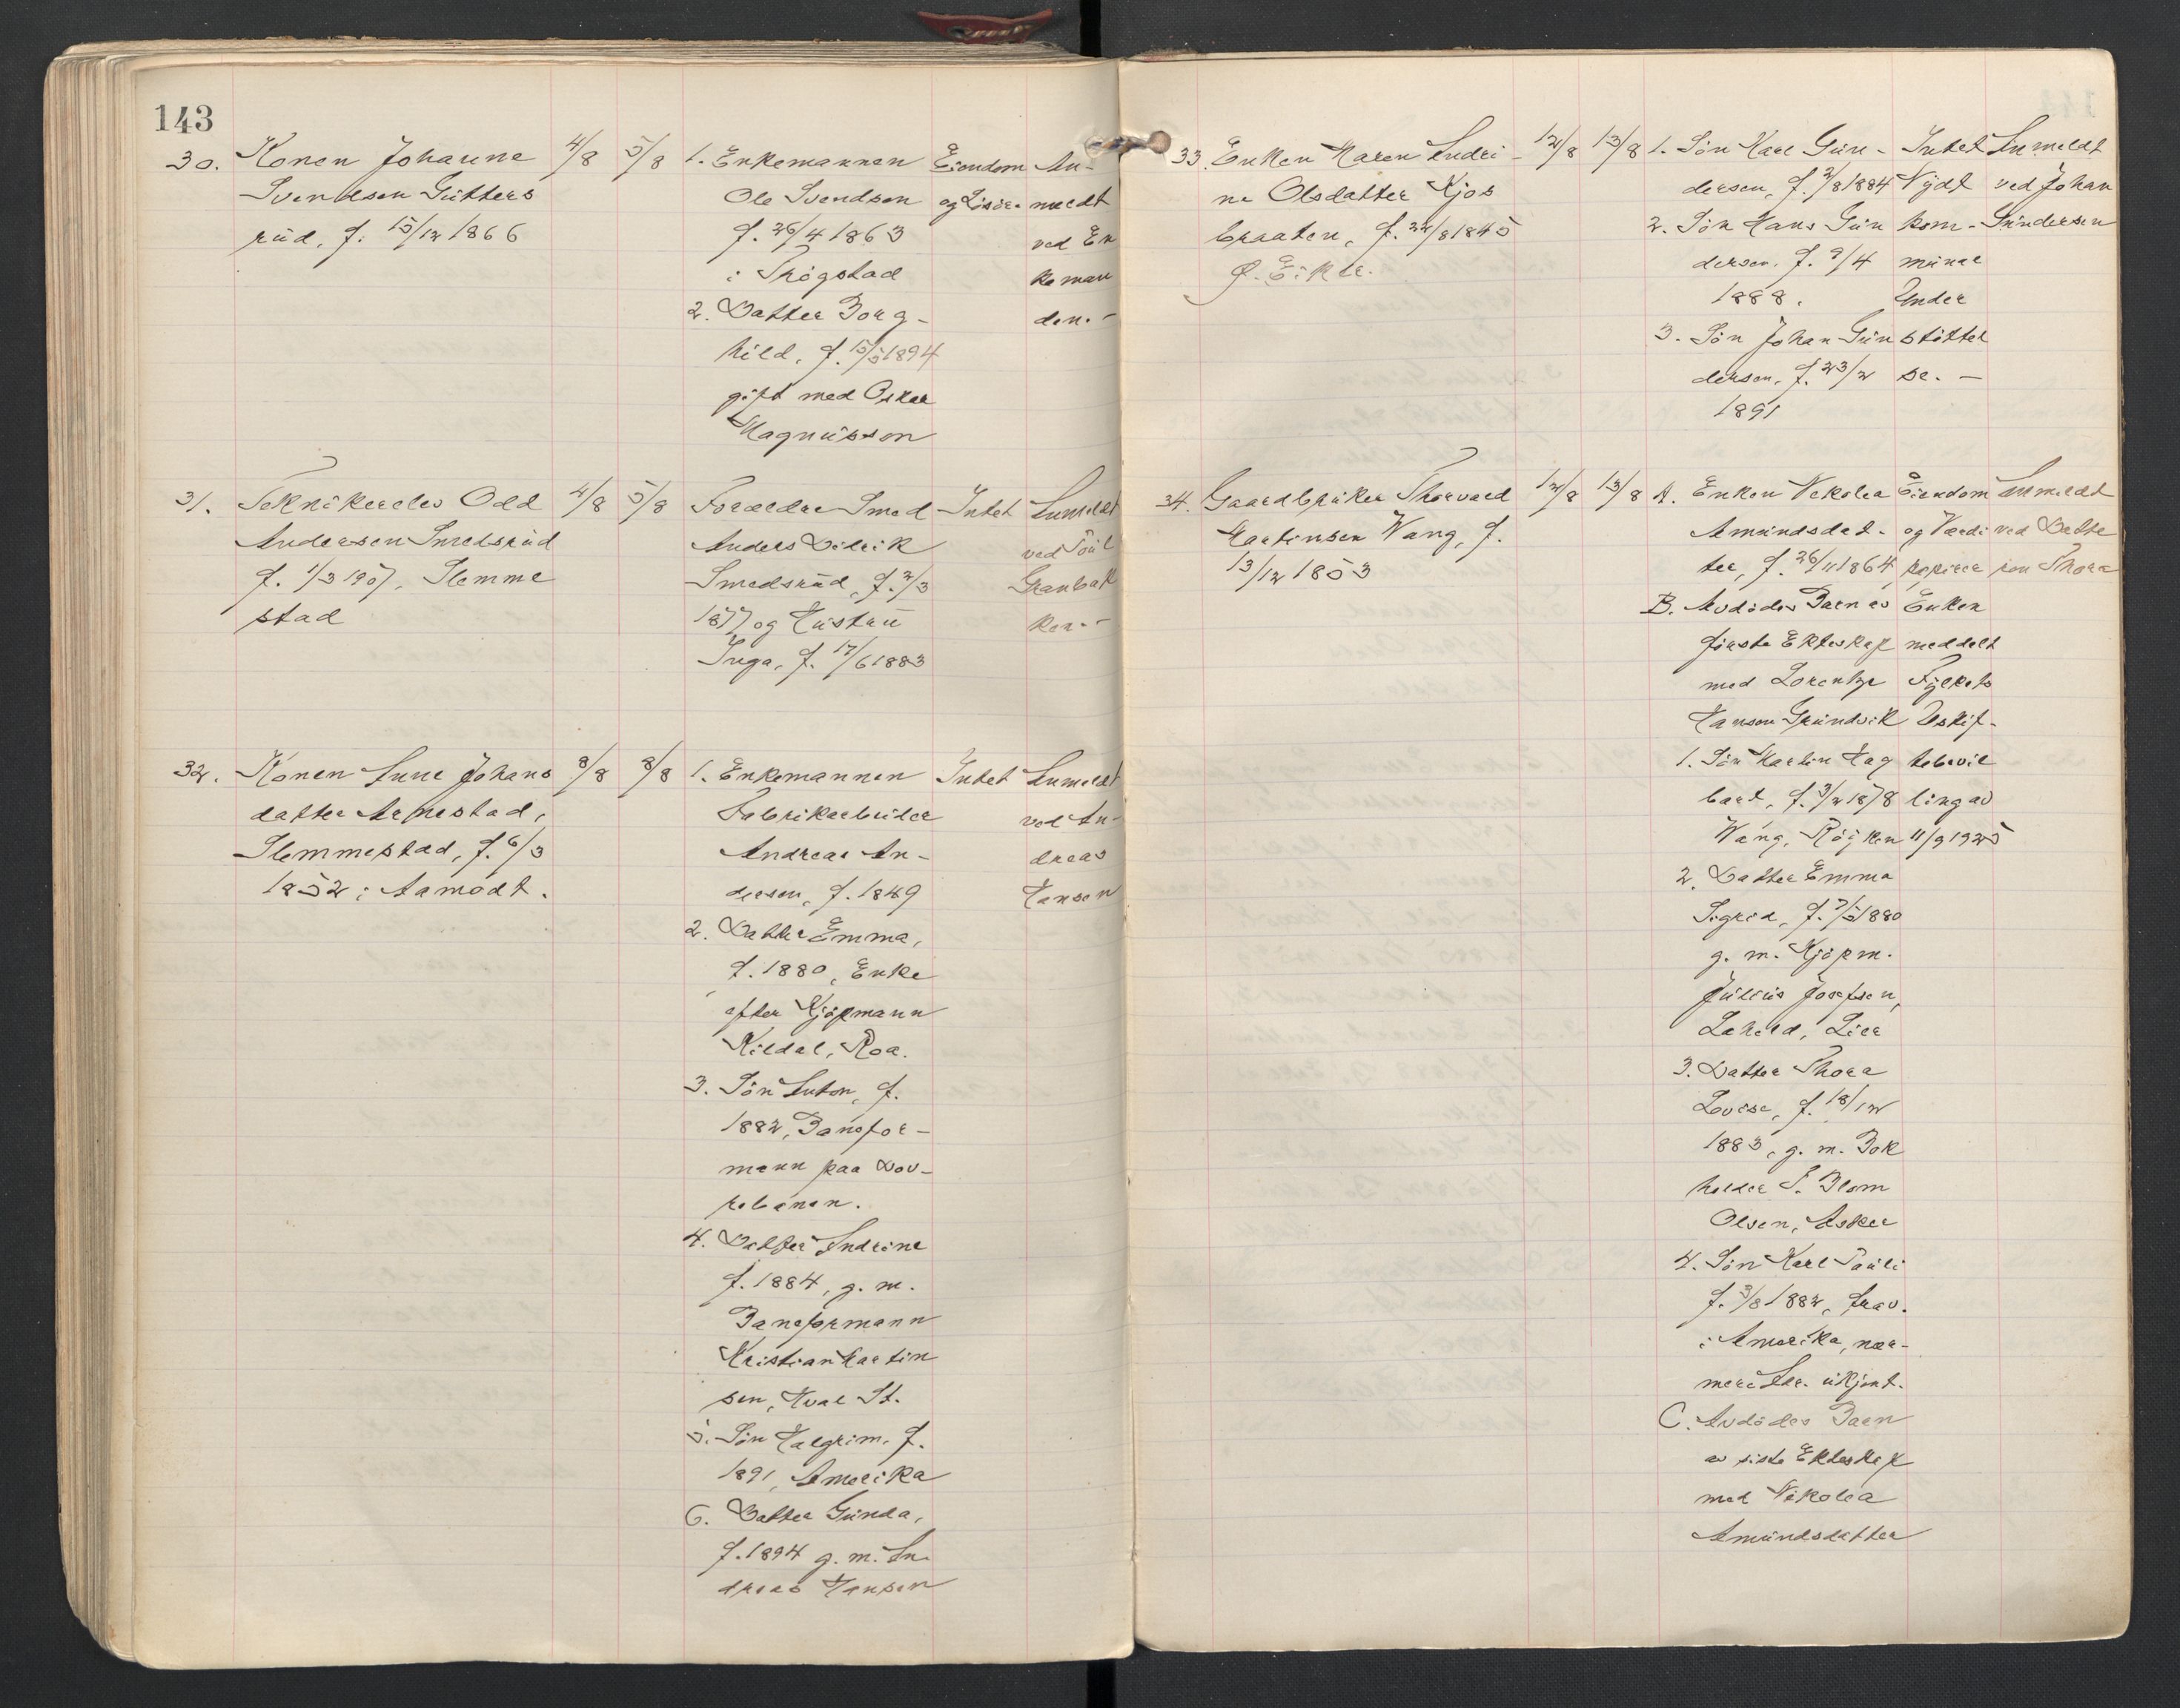 143
30. Konen Johanne 4/8 5/8
Svendsen Gutters
rud, f. 15/12 1866
1. Enkemannen
Ole Svendsen
f. 26/4 1863
i Trögstad
2. Datter Borg-
hild, f. 15/5 1894
gift med Oskar
Magnusson
Eiendom
og Lösöre
An-
meldt
ved En
keman
den. -
31. Teknikerelev Odd 4/8 5/8
Andersen Smedsrud
f. 1/3 1907, Slemme
stad
Forældre Smed
Anders Didrik
Smedsrud, f. 2/3
1877 og Hustru
Inga, f. 17/6 1883
Intet
Anmeldt
ved Poul
Granbak
ken. -
32. Konen Anne Johans 8/8 8/8
datter Arnestad,
Slemmestad, f. 6/3
1852 i Aamodt.
1. Enkemannen
Fabrikarbeider
Andreas An-
dersen, f. 1849
2. Datter Emma,
f. 1880, Enke
efter Kjöpmann
Kildal, Roa.
3. Sön Anton, f.
1882, Banefor-
mann paa Dov-
rebanen.
4. Datter Andrine
f. 1884, g. m.
Baneformann
Kristian Martin
sen, Hval St.
5. Sön Halgrim, f.
1891, Amerika
6. Datter Gunda,
f. 1894 g. m. An
dreas Hansen
Intet
Anmeldt
ved An-
dreas
Hansen
33. Enken Karen Andri- 12/8 13/8
ne Olsdatter Kjos
braaten, f. 22/8 1845
Ø. Eiker.
1. Sön Karl Gun-
dersen, f. 2/8 1884
2. Sön Hans Gun
dersen, f. 9/4
1888.
3. Sön Johan Gun
dersen, f. 23/2
1891
Intet
Nydt
kom-
munal
Under
stöttel
se. -
Anmeldt
ved Johan
Gundersen
34. Gaardbruker Thorvald 12/8 13/8
Martinsen Wang, f.
13/12 1853
A. Enken Nikolea
Amundsdat-
ter, f. 26/11 1864
B. Avdödes Barn av
förste Ekteskap
med Lorentze
Hanson Grundvik
1. Sön Martin Hag
bart, f. 3/2 1878
Wang, Röyken
2. Datter Emma
Sigrid, f. 7/5 1880
g. m. Kjöpm.
Julius Josefsen,
Lahell, Lier
3. Datter Thora
Lovise, f. 18/12
1883, g. m. Bok
holder S. Blom
Olsen, Asker
4. Sön Karl Pauli
f. 3/8 1882, frav.
i Amerika, nær-
mere Adr. ukjent.
C. Avdödes Barn
av siste Ekteskap
med Nikolea
Amundsdatter
Eiendom
og Verdi
papirer
Enken
meddelt
Fylkets
Uskif-
tebevil
ling av
11/9 1925
Anmeldt
ved Datte
ren Thora